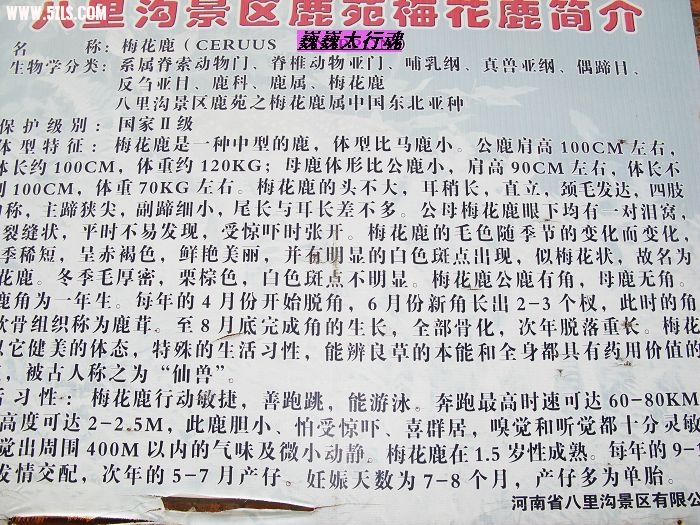 www.51LS.com
八里沟景区鹿苑梅花鹿简介
名 称: 梅花鹿 (CERUUS 巍巍太行魂
生物学分类: 系属脊索动物门、脊椎动物亚门、哺乳纲、真兽亚纲、偶蹄目、
反刍亚目、鹿科、鹿属、梅花鹿
八里沟景区鹿苑之梅花鹿属中国东北亚种
保护级别: 国家Ⅱ级
体型特征: 梅花鹿是一种中型的鹿, 体型比马鹿小。公鹿肩高100CM左右,
体长约100CM, 体重约120KG; 母鹿体形比公鹿小, 肩高90CM左右, 体长不
到100CM, 体重70KG左右。梅花鹿的头不大, 耳稍长, 直立, 颈毛发达, 四肢
匀称, 主蹄狭尖, 副蹄细小, 尾长与耳长差不多。公母梅花鹿眼下均有一对泪窝,
裂缝状, 平时不易发现, 受惊吓时张开。梅花鹿的毛色随季节的变化而变化,
季稀短, 呈赤褐色, 鲜艳美丽, 并有明显的白色斑点出现, 似梅花状, 故名为
花鹿。冬季毛厚密, 栗棕色, 白色斑点不明显。梅花鹿公鹿有角, 母鹿无角。
鹿角为一年生。每年的4月份开始脱角, 6月份新角长出2-3个杈, 此时的角
软骨组织称为鹿茸。至8月底完成角的生长, 全部骨化, 次年脱落重长。梅花
以它健美的体态, 特殊的生活习性, 能辨良草的本能和全身都具有药用价值的
, 被古人称之为“仙兽”。
活习性: 梅花鹿行动敏捷, 善跑跳, 能游泳。奔跑最高时速可达60-80KM
高度可达2-2.5M, 此鹿胆小、怕受惊吓、喜群居, 嗅觉和听觉都十分灵敏
觉出周围400M以内的气味及微小动静。梅花鹿在1.5岁性成熟。每年的9-1
发情交配, 次年的5-7月产仔。妊娠天数为7-8个月, 产仔多为单胎。
河南省八里沟景区有限公